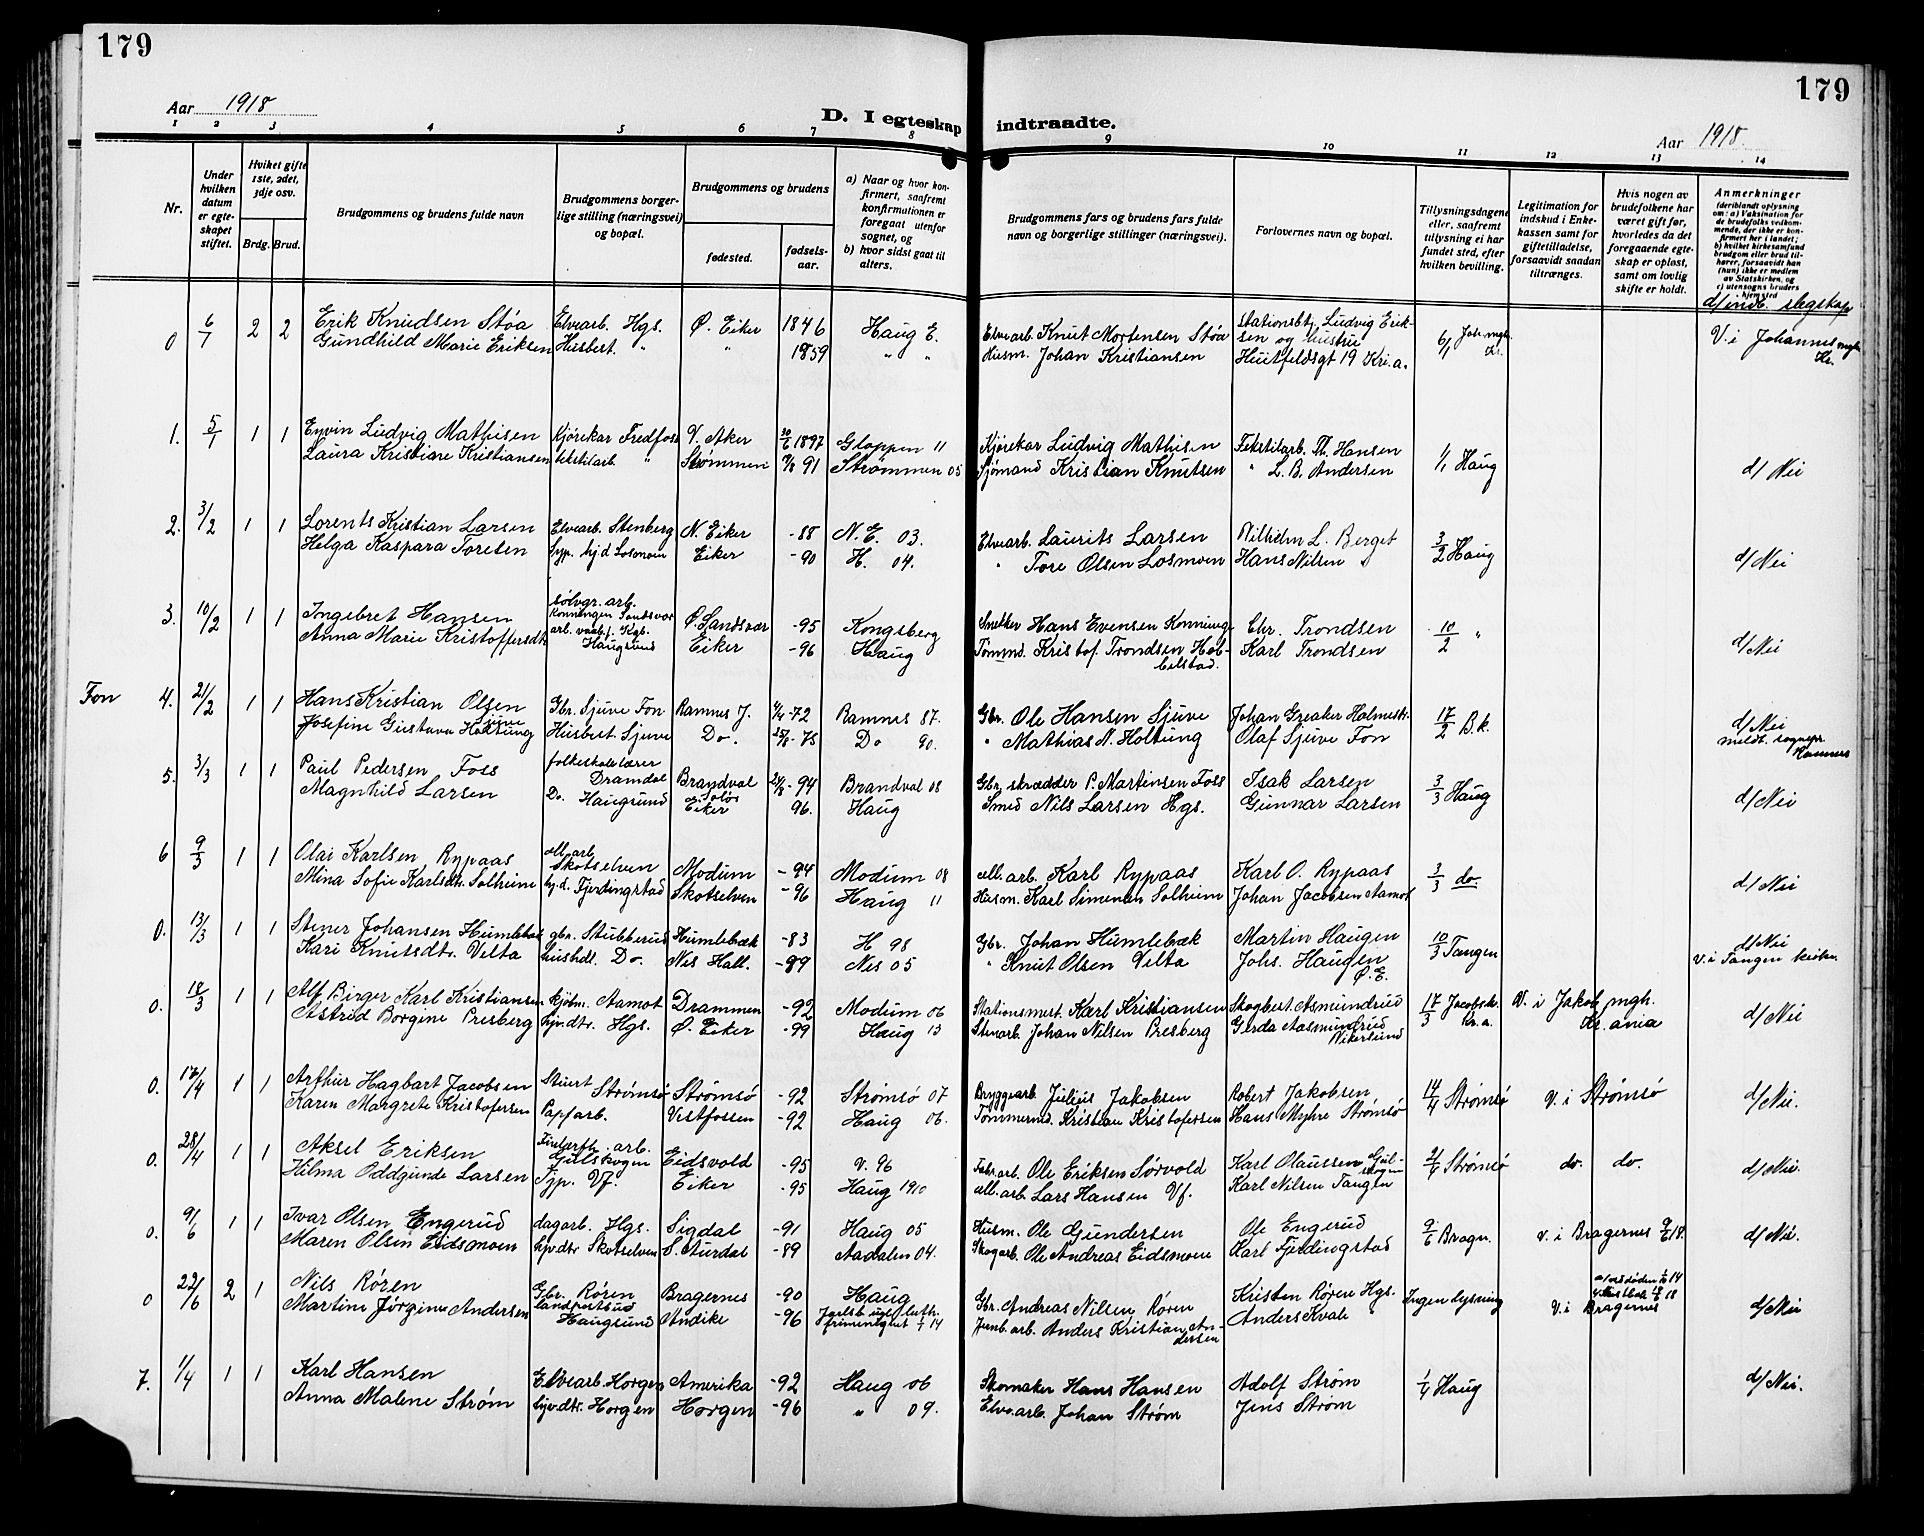 179
179
Aar 1918
D. I egteskap indtraadte.
Aar 1918.
1 2 3 4 5 6 7 8 9 10 11 12 13 14
Nr.
Under hvilken datum er egteskapet stiftet.
Hvilket gifte 1ste, 2det, 3dje osv.
Brdg. Brud.
Brudgommens og brudens fulde navn
Brudgommens borgerlige stilling (næringsvei) og bopæl.
Brudgommens og brudens
fødested.
fødselsaar.
a) Naar og hvor konfirmert, saafremt konfirmationen er foregaat utenfor sognet, og
b) hvor sidst gaat til alters.
Brudgommens fars og brudens fars fulde navn og borgerlige stillinger (næringsvei).
Forlovernes navn og bopæl.
Tillysningsdagene eller, saafremt tillysning ei har fundet sted, efter hvilken bevilling.
Legitimation for indskud i Enkekassen samt for giftetilladelse, forsaavidt saadan tiltrænges.
Hvis nogen av brudefolkene har været gift før, hvorledes da det foregaaende egteskap er opløst, samt om lovlig skifte er holdt.
Anmerkninger
(deriblandt oplysning om: a) Vaksination for de brudefolks vedkommende, der ikke er konfirmert her i landet; b) hvilket kirkesamfund brudgom eller brud tilhører, forsaavidt han (hun) ikke er medlem av Statskirken, og c) utensogns bruders hjemsted
d/ indb. slegskap
0 6/1 2 2 Erik Knudsen Støa Elvearb. Hgs. Ø. Eiker 1846 Haug E. Elvearb. Knut Mortensen Støa Stationsbtj. Ludvig Erik- 6/1 Joh. mgh. Kr. V. i Johannes mgh. Kr.
Gundhild Marie Eriksen Husbest. " " 1859 " " Husm. Johan Kristiansen sen og hustru
Huitfeldsgt 19 Kri.a.
1. 5/1 1 1 Envin Ludvig Mathisen Kjørekar Fredfoss V. Aker 30/6 1897 Gloppen 11 Kjørekar Ludvig Mathisen Tekstilarb. Th. Hansen 1/1 Haug
Laura Kristiane Kristiansen tekstilarb. " Strømmen 91 Strømmen 05 Sjømand Kristian Knutsen " L. B. Andersen d/ Nei
2. 3/2 1 1 Lorents Kristian Larsen Elvearb. Stenberg N. Eiker -88 N. E. 03. Elvearb. Laurits Larsen Vilhelm L. Berget 3/2 Haug
Helga Kaspara Toresen syp. hj.d Losmoen Eiker -90 H. 04. " Tore Olsen Losmoen Hans Nilsen " d/ Nei
3. 10/2 1 1 Ingebret Hansen sølvgr. arb. Konningen Sandsvær Ø. Sandsvær -95 Kongsberg Snekker Hans Evensen Konninge Chr. Trondsen 10/2 "
Anna Marie Kristoffersdtr. arb. vaabf. Kgb. Haugsund Eiker -96 Haug Tømmd. Kristof. Trondsen Hobbelstad. Karl Trondsen d/ Nei
Fon 4. 21/2 1 1 Hans Kristian Olsen Sjuve Gbr. Sjuve Fon Ramnes J. -72 Ramnes 87. Gbr. Ole Hansen Sjuve Johan Greaker Holmestr. 17/2 B.k. d/ Nei
Josefine Gustava Holtung Husbest. Sjuve Do. -75 Do 90. " Mathias N. Holtung Olaf Sjuve Fon meldt. sognepr. Ramnes
5. 3/3 1 1 Paul Pedersen Foss folkeskolelærer Dramdal Brandval Solør 24/8 -94 Brandval 08 Gbr. skrædder P. Martinsen Foss Isak Larsen 3/3 Haug
Magnhild Larsen Do. Haugsund Eiker 96. Haug Smed Nils Larsen Hgs. Gunnar Larsen d/ Nei
6 9/3 1 1 Olai Karlsen Rypaas cell. arb. Skotselven Modum -94 Modum 08 cell. arb. Karl Rypaas Karl O. Rypaas 3/3 do.
Mina Sofie Karlsdtr. Solheim hj.d. Fjerdingstad Skotselven -96 Haug 11 Husm. Karl Simensen Solheim Johan Jacobsen Aamot d/ Nei
0. 13/3 1 1 Stener Johansen Humlebæk gbr. Stubberud Humlebæk -83 H 98 Gbr. Johan Humlebæk Martin Haugen 10/3 Tangen d/ Nei
Kari Knutsdtr. Velta hushdl. Do. Nes Hall. -89 Nes 05 " Knut Olsen Velta Johs. Haugen Ø. E. v. i Tangen kirke
0. 18/3 1 1 Alf Birger Karl Kristiansen kjøbm. Aamot Drammen -92 Modum 06 Stationsmest. Karl Kristiansen Skogbest. Aasmundrud 17/3 Jacobsk. Kr.a. V. i Jakob mgh. Kr.ania d/ Nei
Astrid Borgine Presberg hjv.dtr. Hgs. Ø. Eiker -99 Haug 13 Stenarb. Johan Nilsen Presberg Gerda Aasmundrud Vikersund
0. 17/4 1 1 Arthur Hagbart Jacobsen Stuert Strømsø Strømsø -92 Strømsø 07 Bryggearb. Julius Jakobsen Robert Jakobsen 14/4 Strømsø v. i Strømsø d/ Nei.
Karen Margrete Kristofersen Papfarb. Vestfossen -92 Haug 06. Tømmermd. Kristian Kristofersen Hans Myhre Strømsø
0. 28/4 1 1 Aksel Eriksen arb. Gulskogen Eidsvold -95 v. 96 Fabr. arb. Ole Eriksen Sørvold Karl Olaussen Gulskogen 21/4 Strømsø do. do. d/ Nei.
Hilma Oddgunde Larsen Syp. Vf. Eiker -95 Haug 1910 cell. arb. Lars Hansen Vf. Karl Nilsen Tangen
0. 9/6 1 1 Ivar Olsen Engerud dagarb. Hgs. Sigdal -91 Haug 05 Husm. Ole Gundersen Ole Engerud 9/6 Bragn. v. i Bragernes 9/6 18. d/ Nei.
Maren Olsen Eidsmoen hjv.dtr Skotselven S. Aurdal -89 Aadalen 04. Skogarb. Ole Andreas Eidsmoen Karl Fjerdingstad
0 22/6 2 1 Nils Røren Gbr. Røren Bragernes -90 Haug Gbr. Andreas Nilsen Røren Kristen Røren Hgs. Ingen lysning v. i Bragernes a/ ved døden 14 18 d/ Nei
Martine Jørgine Andersen Haugsund Andike -96 14 Jernb. arb. Anders Kristian Andersen Anders Kvale
7. 1/4 1 1 Karl Hansen Elvearb. Horgen Amerika -92 Haug 06 Skomaker Hans Hansen Adolf Strøm 1/4 Haug d/ Nei.
Anna Malene Strøm hjv.dtr. Horgen Horgen -96 " 09. Elvearb. Johan Strøm Jens Strøm